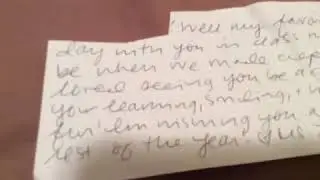 Well my favor
day with you in class
be when we made
loved seeing you be a
your learning, smiling,
fun. I'm wishing you a
rest of the year.